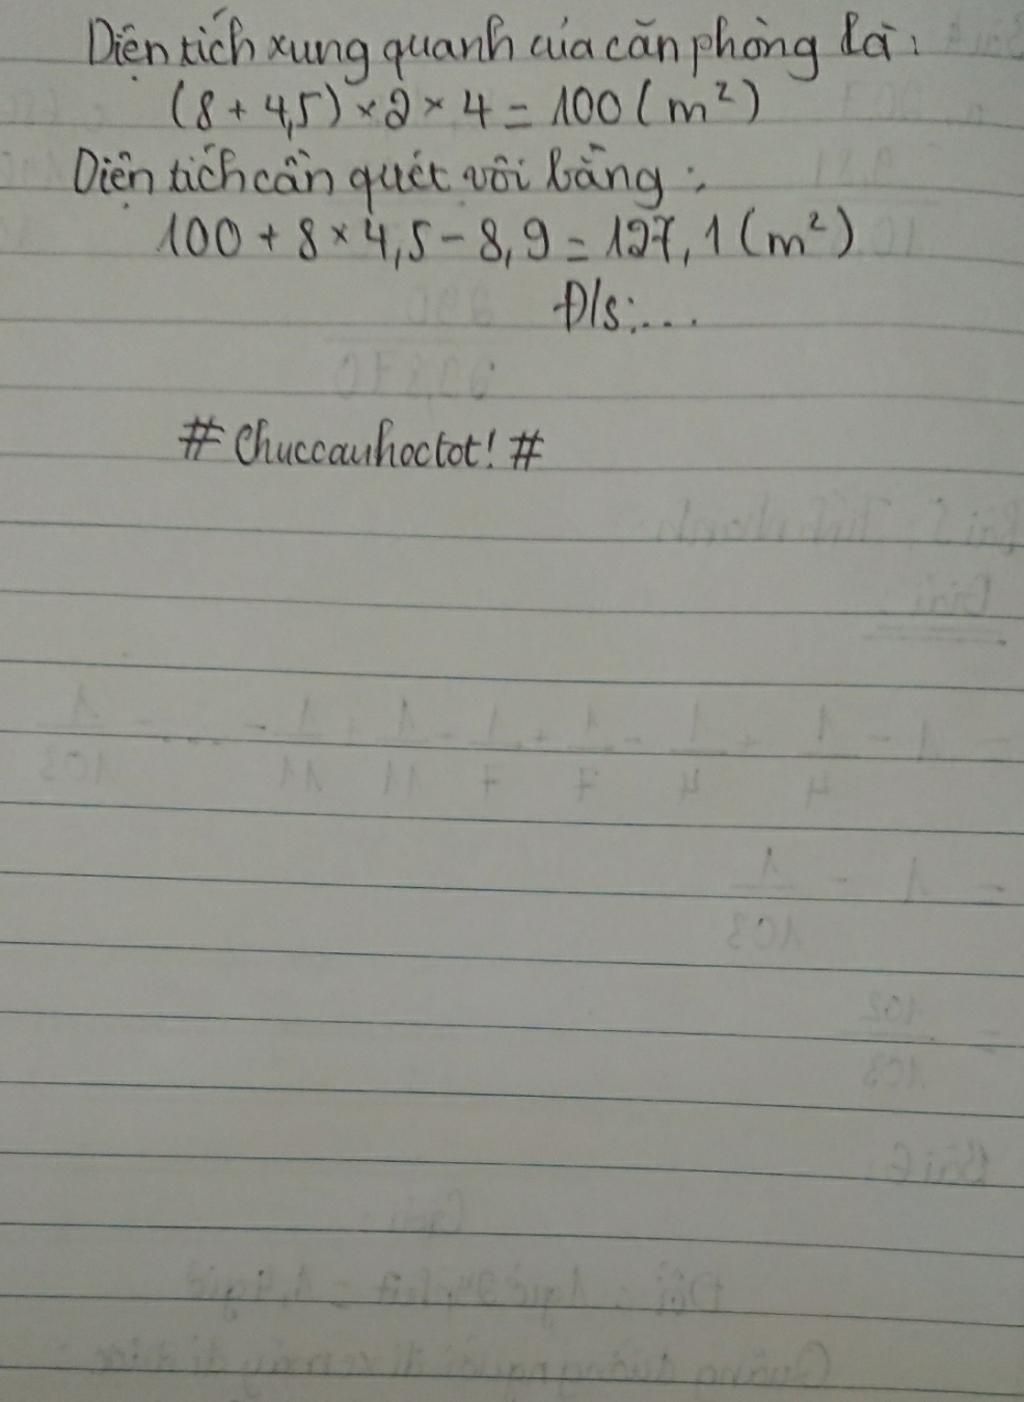 Diện tích xung quanh của căn phòng là:
(8 + 4,5) × 2 × 4 = 100 (m²)
Diện tích cần quét vôi bằng:
100 + 8 × 4,5 - 8,9 = 127,1 (m²)
Đ/s:...
#Chuccauhoctot!#